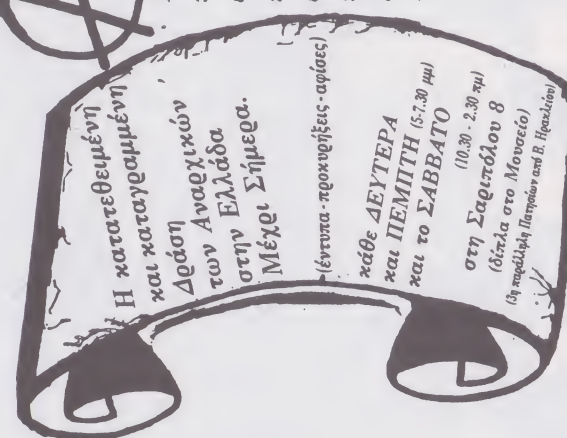 Η κατατεθειμένη
και καταγραμμένη
Δράση
των Αναρχικών
στην Ελλάδα
Μέχρι Σήμερα.
(έντυπα-προκυρήξεις-αφίσες)
κάθε ΔΕΥΤΕΡΑ
και ΠΕΜΠΤΗ (5-7.30 μμ)
και το ΣΑΒΒΑΤΟ
(10.30 - 2.30 πμ)
στη Σαριπόλου 8
(δίπλα στο Μουσείο)
(3η παράλληλη Πατησίων από Β. Ηρακλείου)